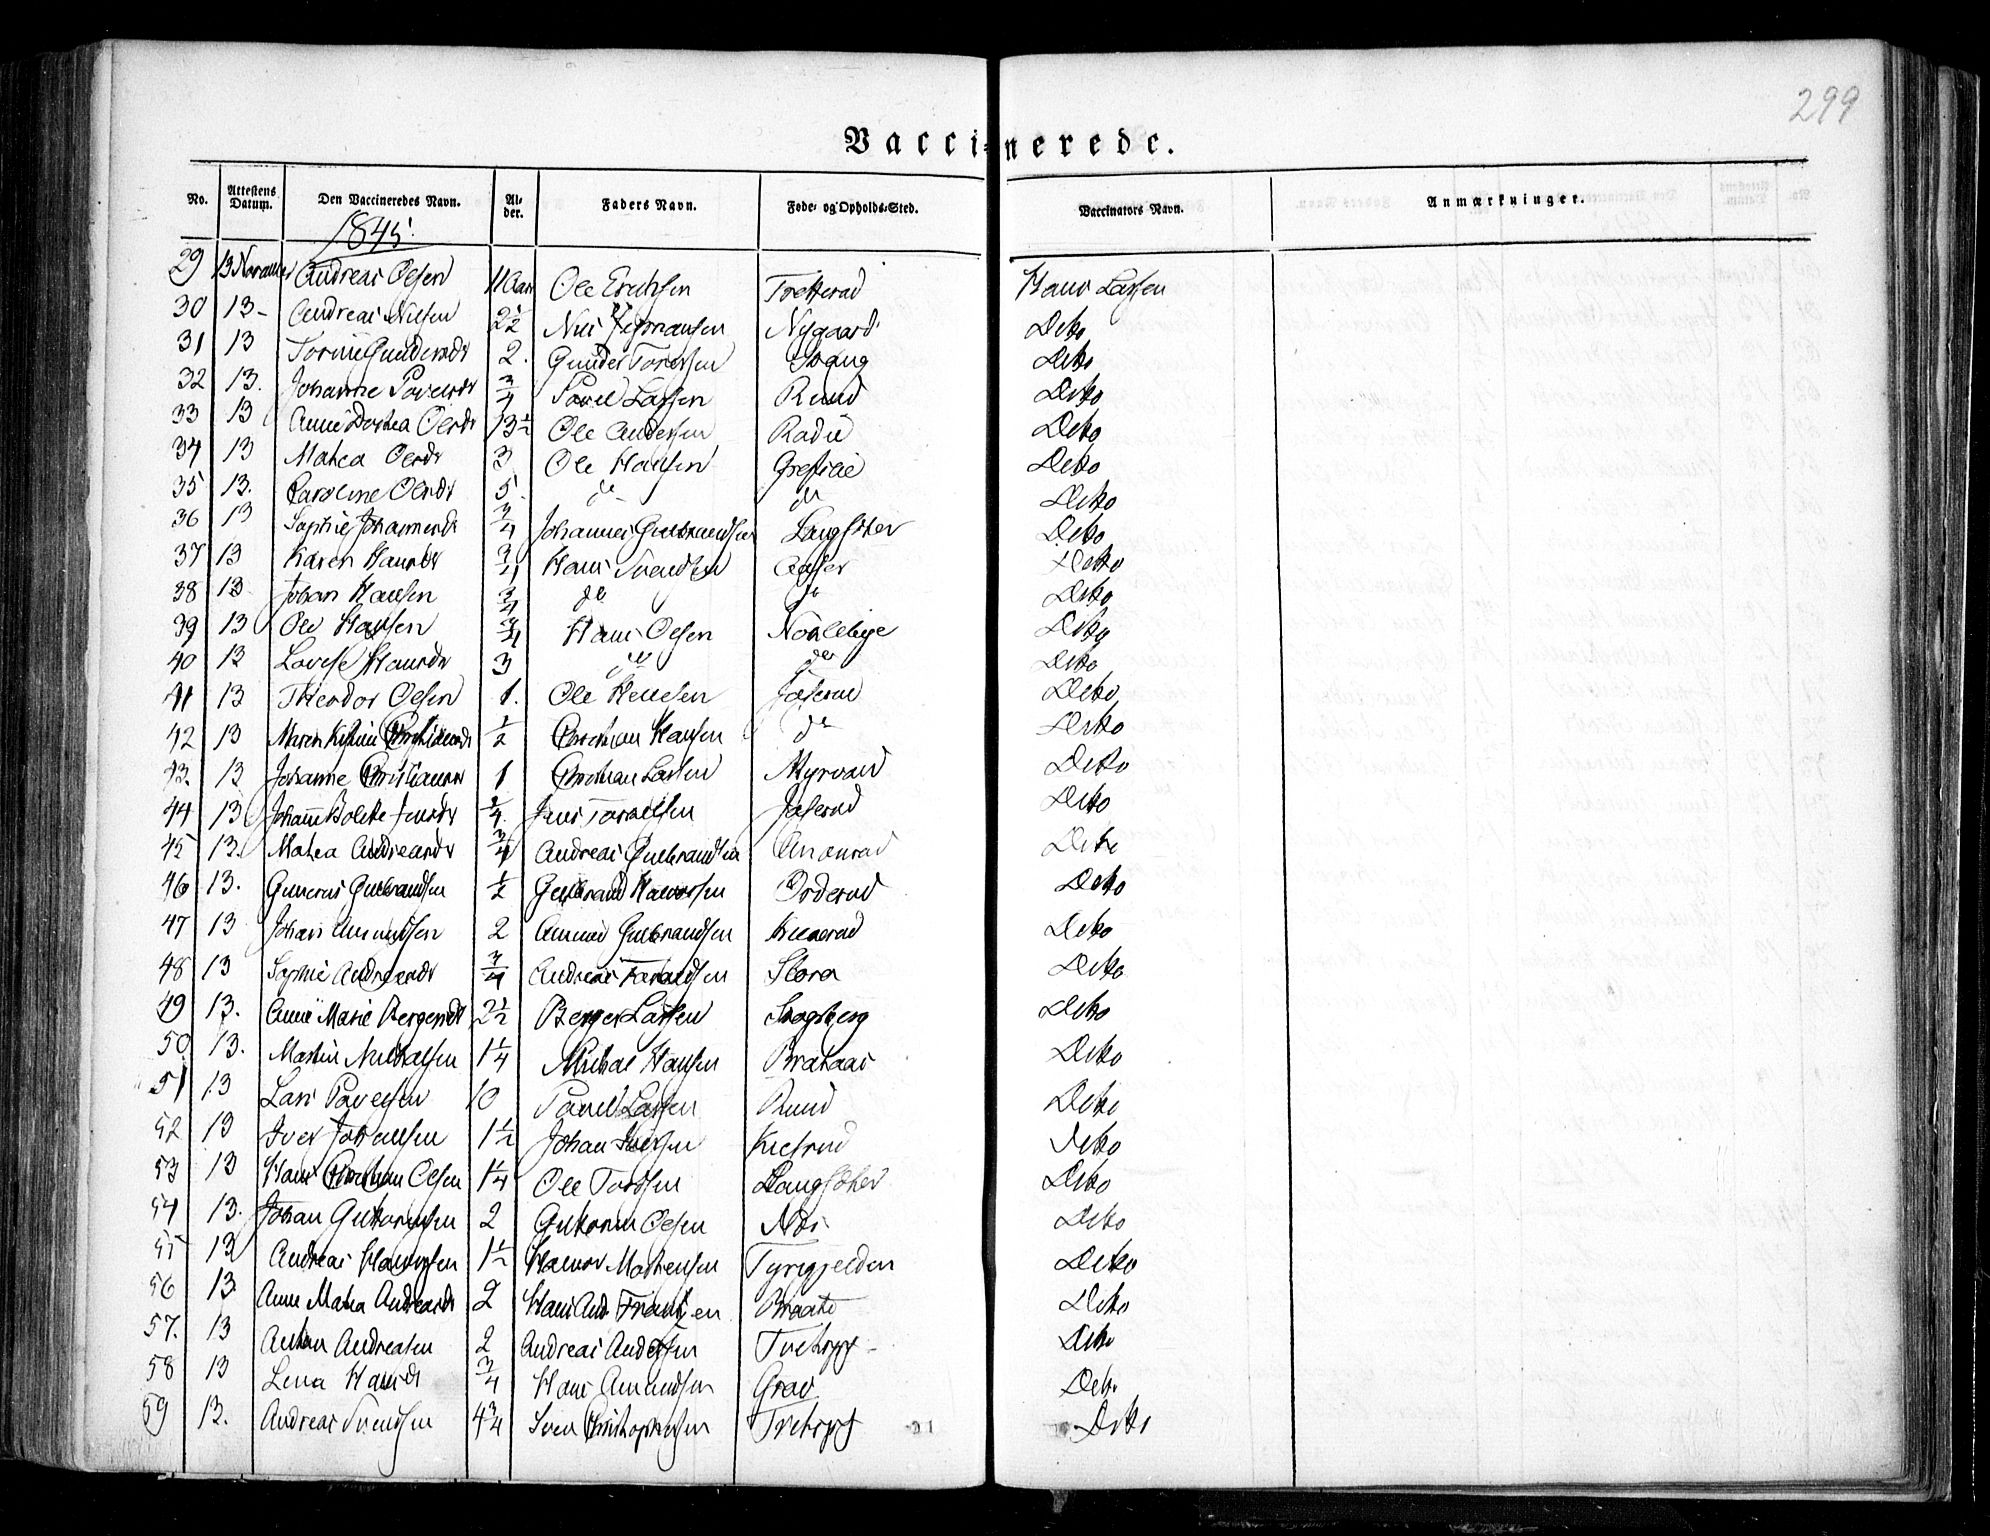 299
Vaccinerede.
No. Attestens Datum. Den Vaccineredes Navn. Alder. Faders Navn. Føde- og Opholds-Sted. Vaccinators Navn. Anmærkninger.
1845.
29 13 November Andreas Olsen 11 Aar Ole Erichsen Tretterud Hans Larsen
30 13 - Andreas Nilsen 2 1/2 Nils Nygaard Deto
31 13 Gundersdr 2. Gunder Toresen Deto
32 13. Johanne Povelsdr 3/4 Povel Larsen Ruud Deto
33 13 Anne Dorthea Olsdr 13 1/2 Ole Andersen Deto
34 13 Mathea Olsdr 3 Ole Hansen Deto
35 13. Caroline Olsdr 5. do do Deto
36 13 Sophie Johannesdr 3/4 Johannes Gulbrandsen Langsæter Deto
37 13 Karen Hansdr 3/4 Hans Svendsen Deto
38 13 Johan Hansen 3/4 do do Deto
39 13 Ole Hansen 3/4 Hans Olsen Nordebye Deto
40 13 Lovise Hansdr 3 do do Deto
41 13 Theodor Olsen 1. Ole Jaserud Deto
42 13 Maren Kistine 1/2 Christian Hansen do Deto
43. 13 Johanne Christiansdr 1 Christian Larsen Myrvold Deto
44 13 Johanne Bolette Jensdr Jens Jaserud Deto
45 13. Mathea Andreasdr 3/4 Andreas Gulbrandsen Deto
46 13. Gulbrandsen 1/2 Gulbrand Haworsen Orderud Deto
47 13 Johan Amundsen 2 Amund Gulbrandsen Deto
48 13 Sophie Andreasdr 3/4 Andreas Slora Deto
49 13. Anne Marie Bergersdr 2 1/2 Berger Larsen Skogsberg Deto
50 13. Martin Michalsen 1 1/4 Michal Hansen Brataas Deto
51 13 Lars Povelsen 10 Povel Larsen Ruud Deto
52 13 Iver Johansen 1 1/2 Johan Iversen Deto
53 13 Hans Christian Olsen 1 1/4 Ole Langsæter Deto
54 13. Johan Guttormsen 2 Guttorm Olsen Næs Deto
55 13 Andreas Haworsen 1 1/2 Hawor Mathensen Tyrigjelden Deto
56 13. Anne Mathea Andreasdr 2 Hans And. Frantzen Braate Deto
57. 13 Anthon Andreasen 2 Andreas Andersen Deto
58 13 Lena Hansdr 3/4 Hans Amundsen Grav Deto
59 13. Andreas Svendsen 4 3/4 Sven Christophersen Deto